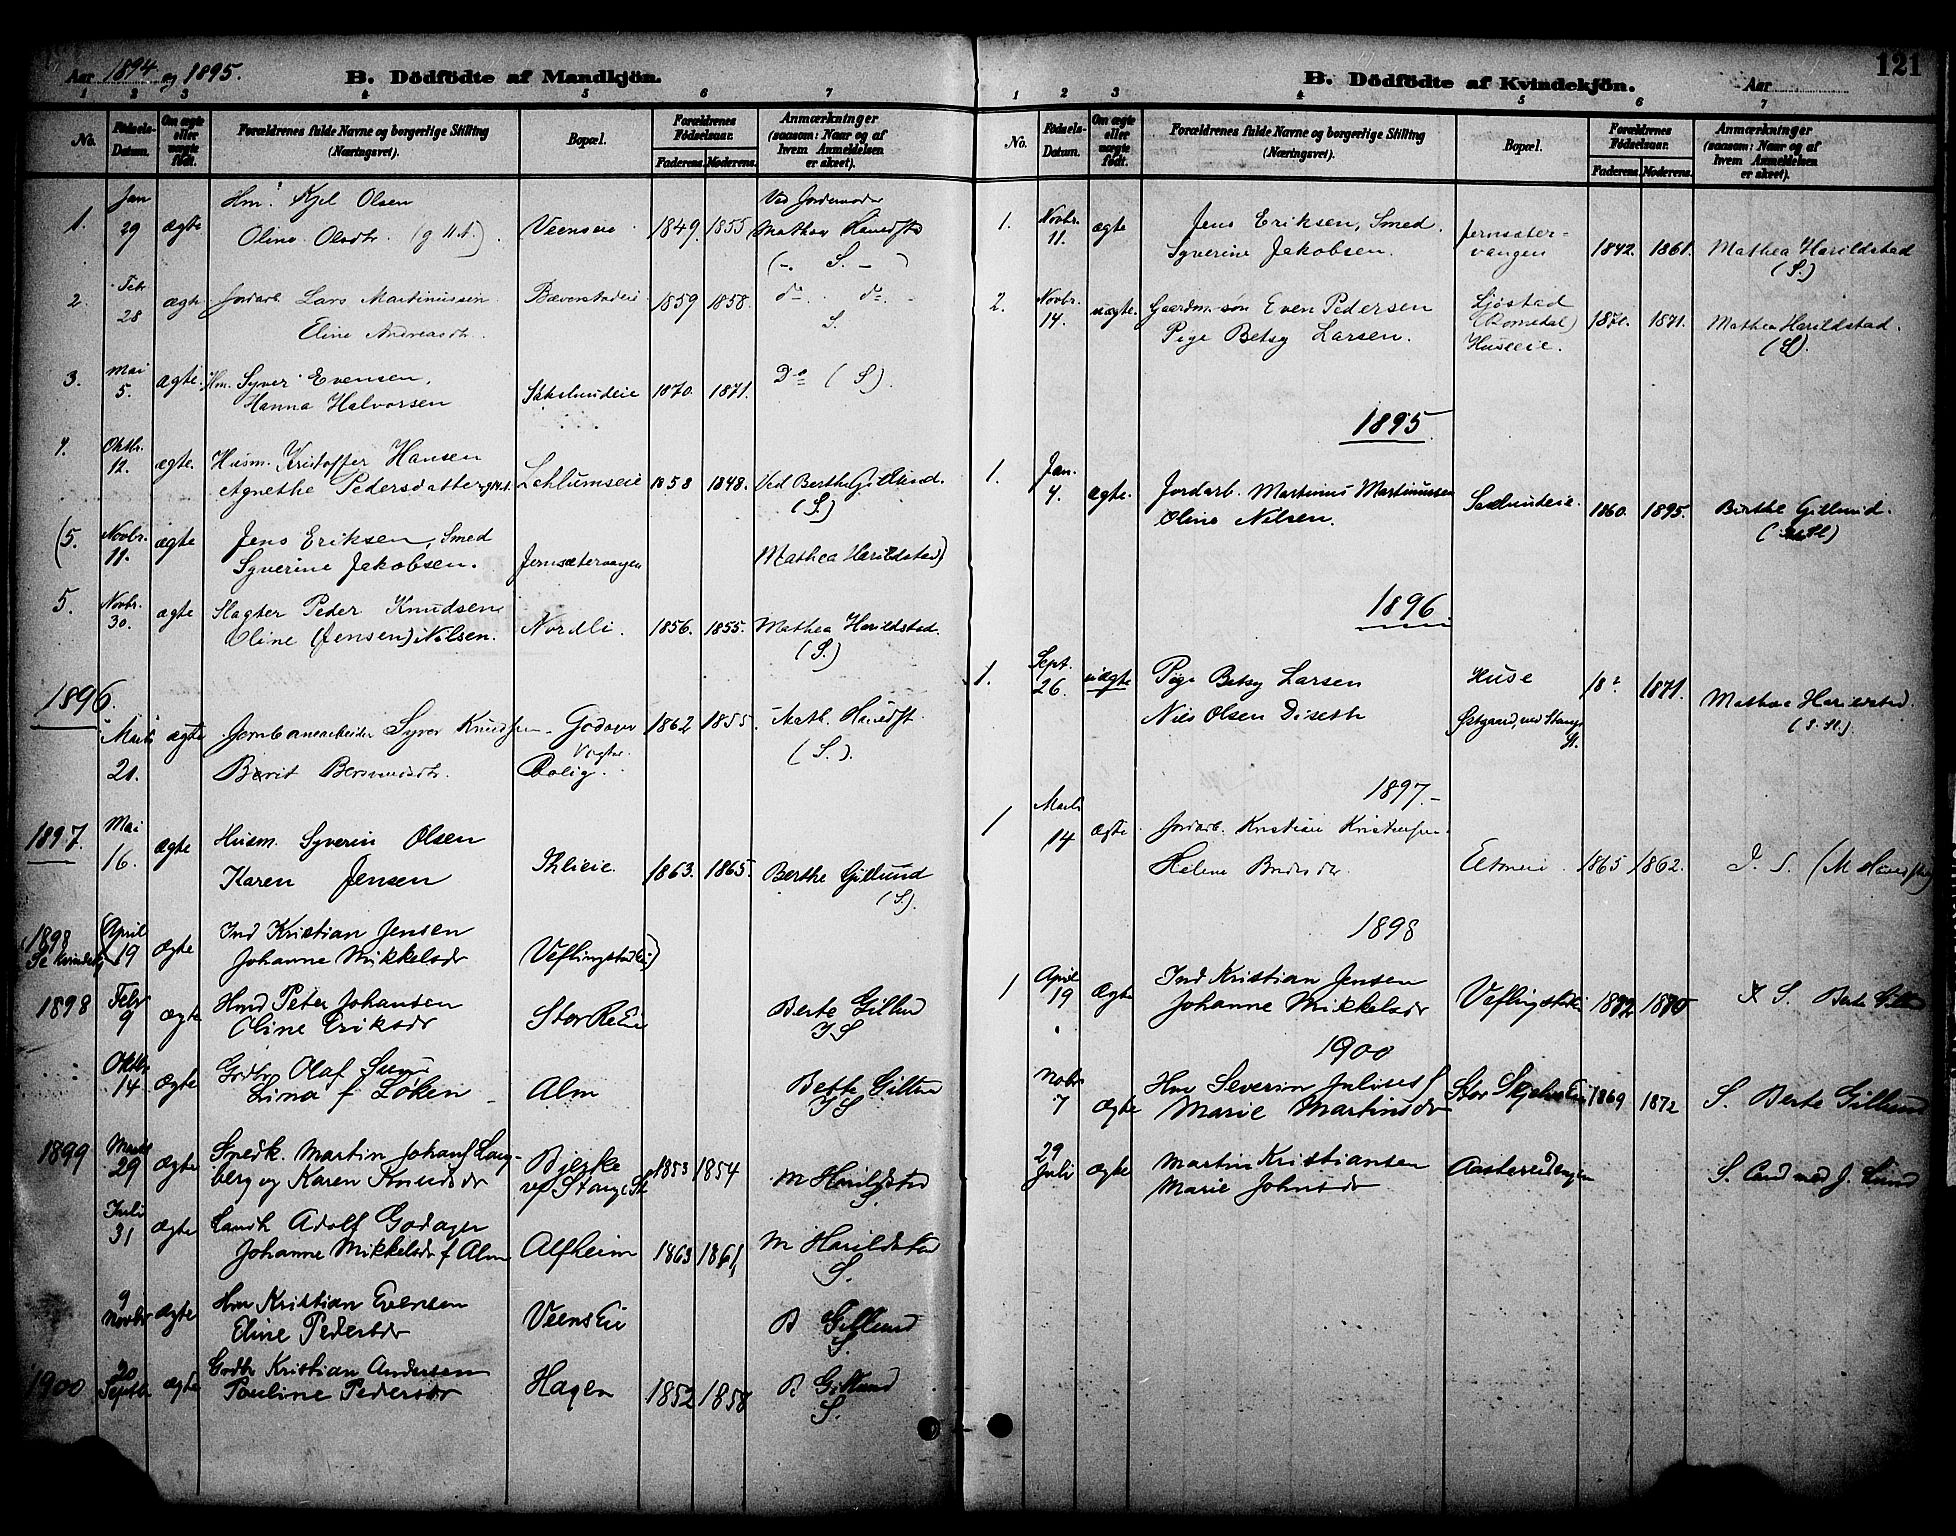 Aar 1894 og 1895.
B. Dödfödte af Mandkjön.
1 2 3 4 5 6 7
No.
Födsels-Datum.
Om ægte eller uægte födt.
Forældrenes fulde Navne og borgerlige Stilling
(Næringsvei).
Bopæl.
Forældrenes Födselsaar.
Faderens. Moderens.
Anmærkninger
(saasom: Naar og af
hvem Anmeldelsen
er skeet).
1. Jan 29 ægte Hm. Kjel Olsen
Oline Olsdtr. Veenseie 1849. 1855 Ved Jordemoder
(-. S. - )
2. Febr 28 ægte Jordarb. Lars Martinussen
Eline Andreasdtr. Bæverstadeie 1859 1858. do. do.
S.
3. Mai 5. ægte Hm. Syver Evensen,
Hanna Halvorsen 1870. 1871. Do (S).
4. Oktbr. 12. ægte. Husm. Kristoffer Hansen
Agnethe Pedersdatter Lehlumseie 1858 1848. Ved Berthe Gillund.
(S.)
(5. Novbr. 11. ægte Jens Eriksen, Smed
Syverine Jakobsen. Jernsætervangen Mathea Harildstad)
5. Novbr. 30. ægte Slagter Peder Knudsen
Oline (Jensen) Nilsen. Nordli. 1856. 1855. Mathea Harildstad.
(S.)
1896.
Marts 21. ægte Jernbanearbeider Syver Knudsen
Berit Godager Vogter Bolig. 1862 1855
(S.).
1897. Mai 16. ægte Husm. Syverin Olsen
Karen Jensen 1863. 1865. Berthe Gillund
(S).
1898 Se (April 19 ægte Ind Kristian Jensen
Johanne Mikkelsdr (Veflingstadei)
1898 Febr 9 ægte Hmd Peter Johansen
Oline Eriksdr Stor Re Ei Berte Gillund
JS
Oktbr 14. ægte Grdbr Olaf
Lina f Løken Alm Berte Gillund
JS
1899 Marts 29 ægte Smedk. Martin Johans Lang-
berg og Karen Knudsdr Bjerke
v/ Stange St 1853 1854 M Harildstad
Juli 31 ægte Adolf Godager
Johanne Mikkelsdr f Alm Alfheim 1863 1861, M Harildstad
S.
9 Novbr ægte Hm Kristian Evensen
Eline Pedersdr Veens Eie B Gillund
S.
1900 20 Septbr ægte Grdbr Kristian Andersen
Pauline Pedersdr Hagen 1852 1858 B Gillund
S.
121
B. Dödfödte af Kvindekjön.
Aar
1 2 3 4 5 6 7
No.
Födsels-Datum.
Om ægte eller uægte födt.
Forældrenes fulde Navne og borgerlige Stilling
(Næringsvei).
Bopæl.
Forældrenes Födselsaar.
Faderens. Moderens.
Anmærkninger
(saasom: Naar og af
hvem Anmeldelsen
er skeet).
1. Novbr. 11. ægte Jens Eriksen, Smed.
Syverine Jakobsen. Jernsæter-
vangen 1842. 1861. Mathea Harildstad
(S.)
2. Novbr. 14. uægte. Gaardm.søn Even Pedersen
Pige Betsy Larsen. Ljøstad
(Romedal)
Huseeie. 1871. 1871. Mathea Harildstad.
(S).
1895.
1. Jan. 4. ægte. Jordarb. Martinus Martinussen
Oline Nilsen. 1860. 1895. Birthe Gillund.
1896
1. Sept. 26. uægte Pige Betsy Larsen
Nils Olsen Diseth Huse
Østgaard ved Stange St. 18? 1871. Mathea Harildstad
(S. St.)
1897.-
1 Marts 14 ægte. Jordarb. Kristian Kristensen
Helene 1865 1862. J. S.
1898
1 April 19 ægte Ind Kristian Jensen
Johanne Mikkelsdr Veflingstadei S. Berte Gillund
1900
Novbr 7 ægte Hm Severin Julius f
Marie Martinsdr 1869 1872 S. Berte Gillund
29 Juli ægte Martin Kristiansen
Marie Johnsdr S. Cand med J. Lund